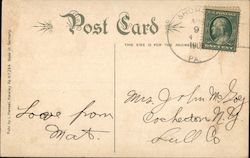 Post Card
THIS SIDE IS FOR THE ADDRESS
9
PA.
Love from
Mat.
Mrs. John Mc
Cochecton N.Y.
Sull Co